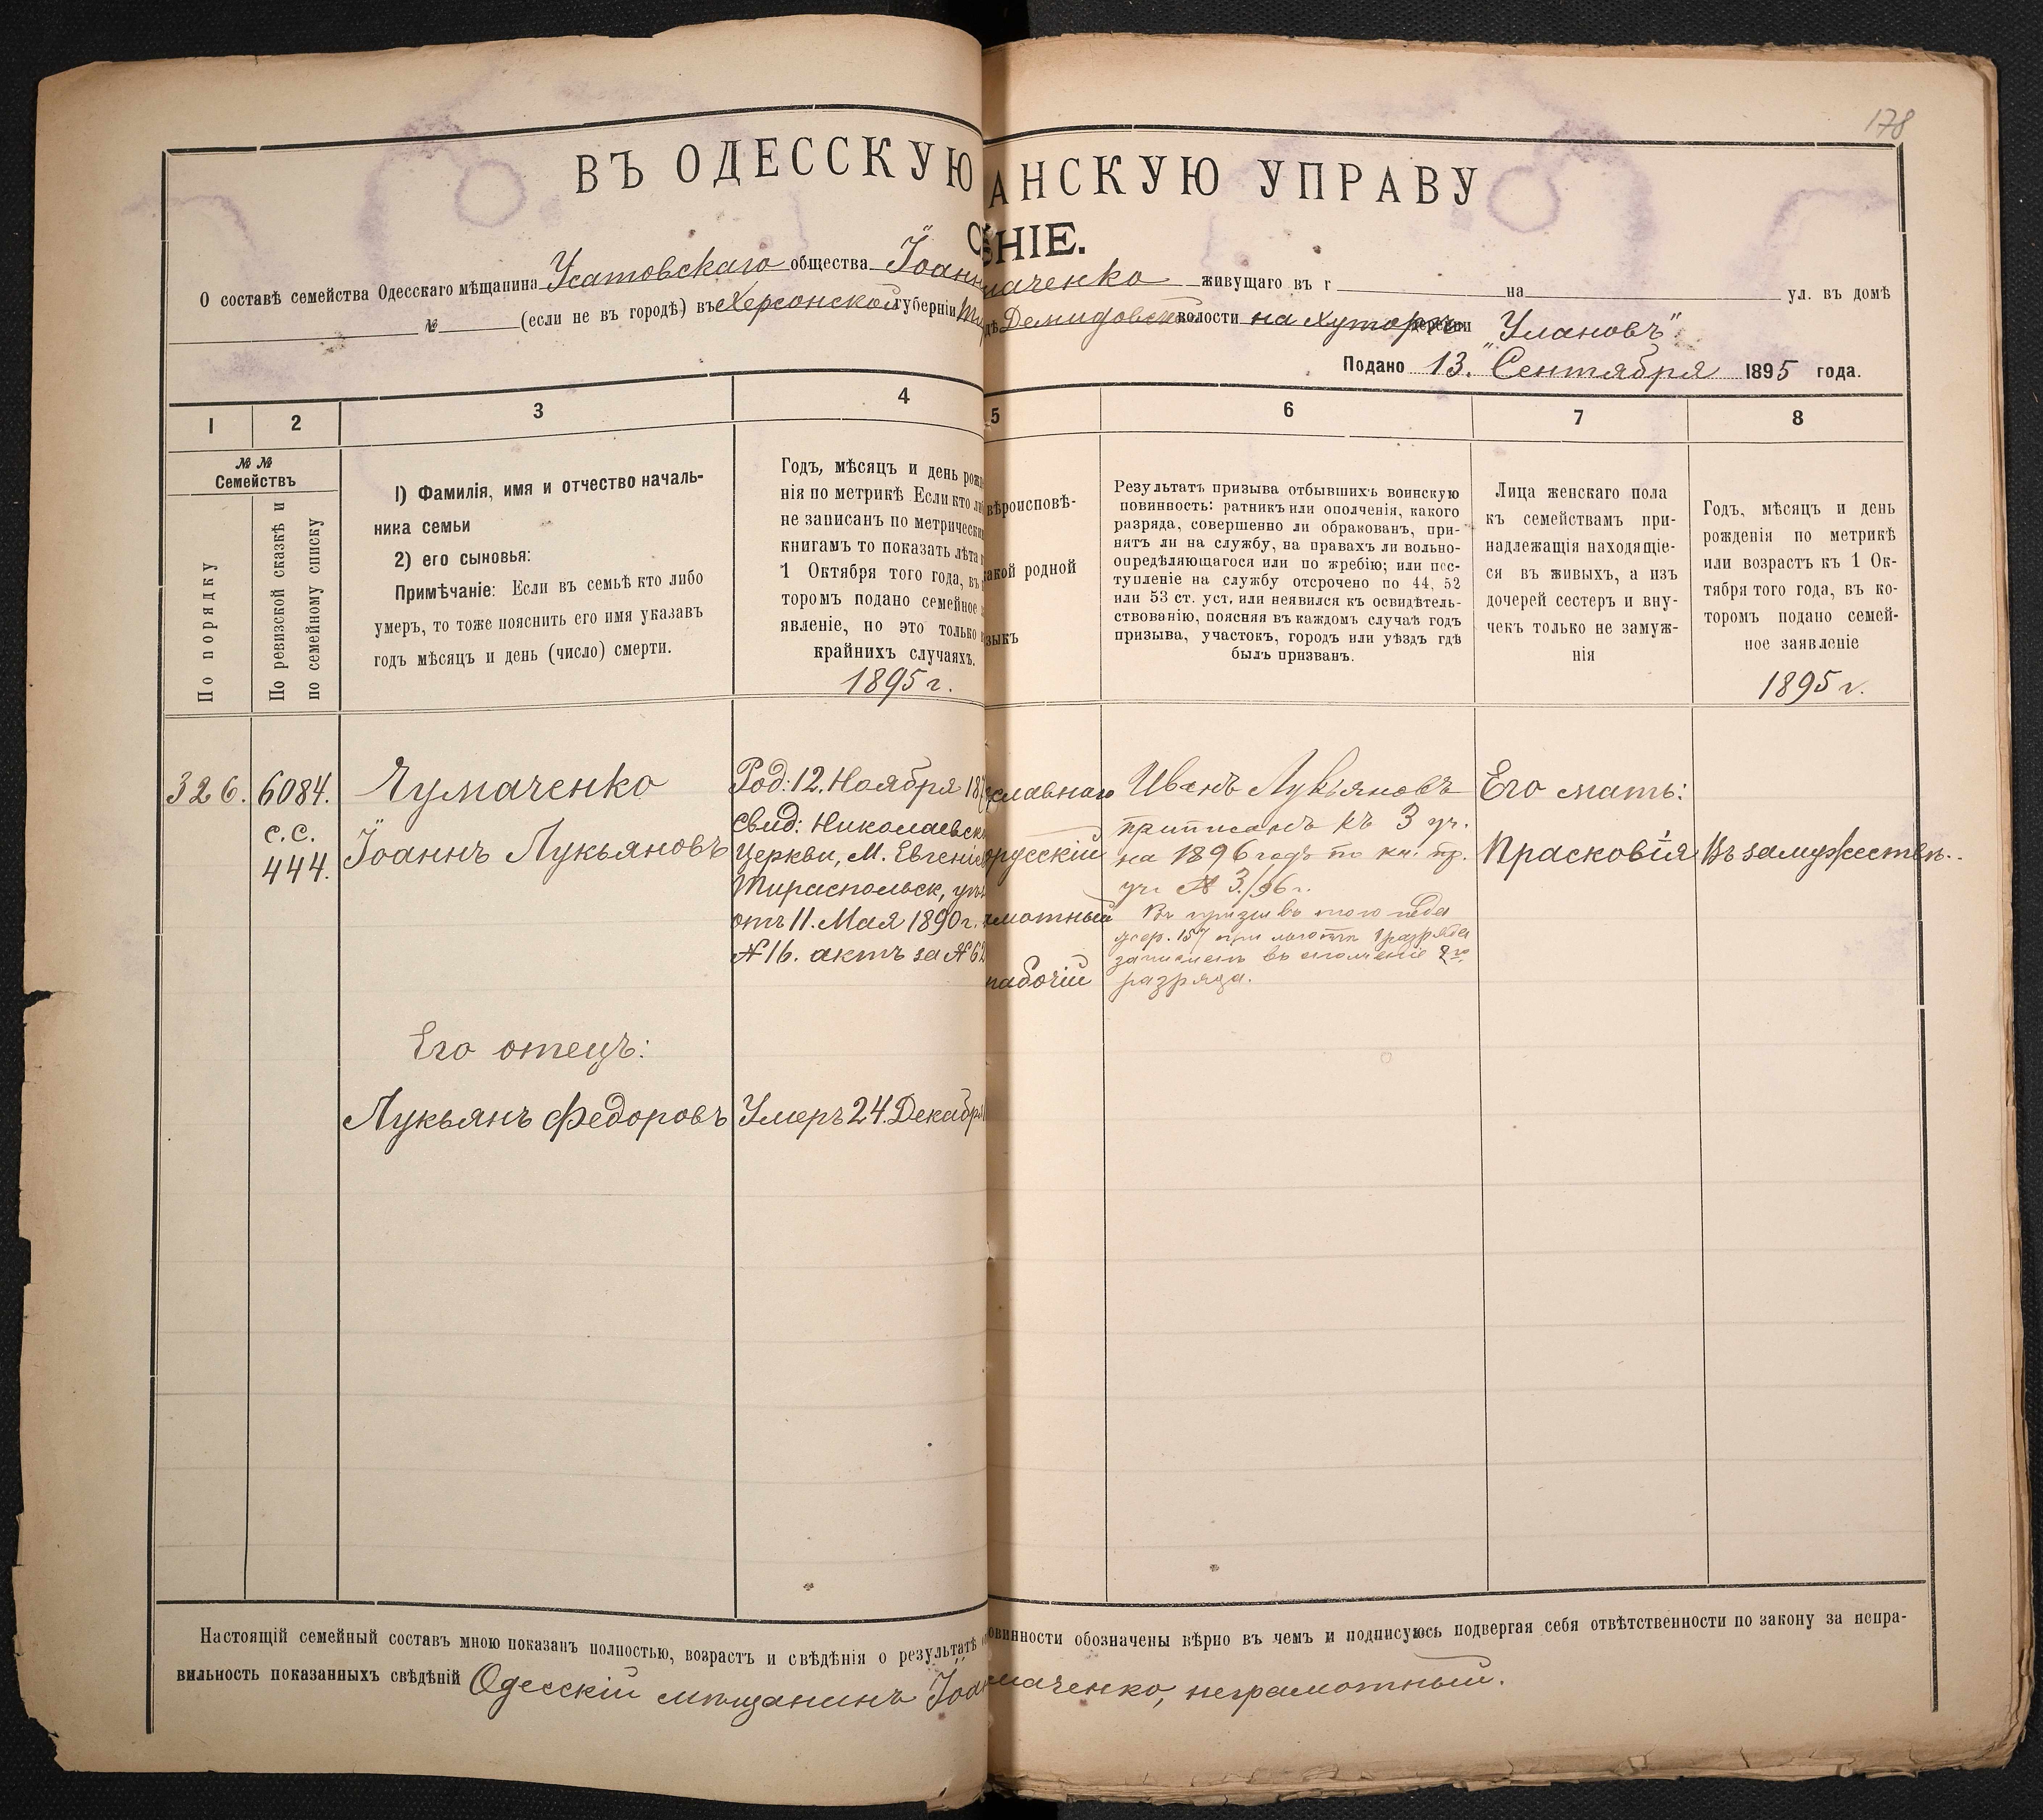 178
ВЪ ОДЕССКУЮ АНСКУЮ УПРАВУ
НІЕ.
О составѣ семейства Одесскаго мѣщанина Усатовскаго общества Іоанн маченко живущаго въ г на ул. въ домѣ
№ (если не въ городѣ) въ Херсонской губерніи Ти дѣ Демидовской волости на Хуторѣ деревни „Улановъ"
Подано 13. Сентября 1895 года.
1 2 3 4 5 6 7 8
№ №
Семействъ
По порядку
По ревизской сказкѣ и
по семейному списку
1) Фамилія, имя и отчество началь-
ника семьи
2) его сыновья:
Примѣчаніе: Если въ семьѣ кто либо
умеръ, то тоже пояснить его имя указавъ
годъ мѣсяцъ и день (число) смерти.
Годъ, мѣсяцъ и день рож
нія по метрикѣ Если кто ли
не записанъ по метрически
книгамъ то показать лѣта
1 Октября того года, въ
торомъ подано семейное
явленіе, но это только
крайнихъ случаяхъ.
1895 г.
вѣроисповѣ-
акой родной
зыкъ
Результатъ призыва отбывшихъ воинскую
повинность: ратникъ или ополченія, какого
разряда, совершенно ли обракованъ, при-
нятъ ли на службу, на правахъ ли вольно-
опредѣляющагося или по жребію; или пос-
тупленіе на службу отсрочено по 44, 52
или 53 ст. уст. или неявился къ освидѣтель-
ствованію, поясняя въ каждомъ случаѣ годъ
призыва, участокъ, городъ или уѣздъ гдѣ
былъ призванъ.
Лица женскаго пола
къ семействамъ при-
надлежащія находящіе-
ся въ живыхъ, а изъ
дочерей сестеръ и вну-
чекъ только не замуж-
нія
Годъ, мѣсяцъ и день
рожденія по метрикѣ
или возрастъ къ 1 Ок-
тября того года, въ ко-
торомъ подано семей-
ное заявленіе
1895 г.
326.
6084.
с.с.
444.
Чумаченко
Іоаннъ Лукьяновъ
Род: 12. Ноября 187
Свид: Николаевск
Церкви, М. Евгеніе
Тираспольск, уѣз
отъ 11. Мая 1890 г.
№ 16. актъ за № 62
славнаго
русскій
мотный
рабочій
Иванъ Лукьяновъ
приписанъ къ 3 уч.
на 1896 годъ по кн. пр.
уч № 3./96 г.
Въ призывъ того года
жер. 157 при льготѣ 1 разряда
зачисленъ въ ополченіе 2го
разряда.
Его мать:
Прасковія
Въ замужествѣ.
Его отецъ:
Лукьянъ Федоровъ
Умеръ 24. Декабря
Настоящій семейный составъ мною показанъ полностью, возрастъ и свѣдѣнія о результатѣ овинности обозначены вѣрно въ чемъ и подписуюсь подвергая себя отвѣтственности по закону за непра-
вильность показанныхъ свѣдѣній Одесскій мѣщанинъ Іоа маченко, неграмотный.